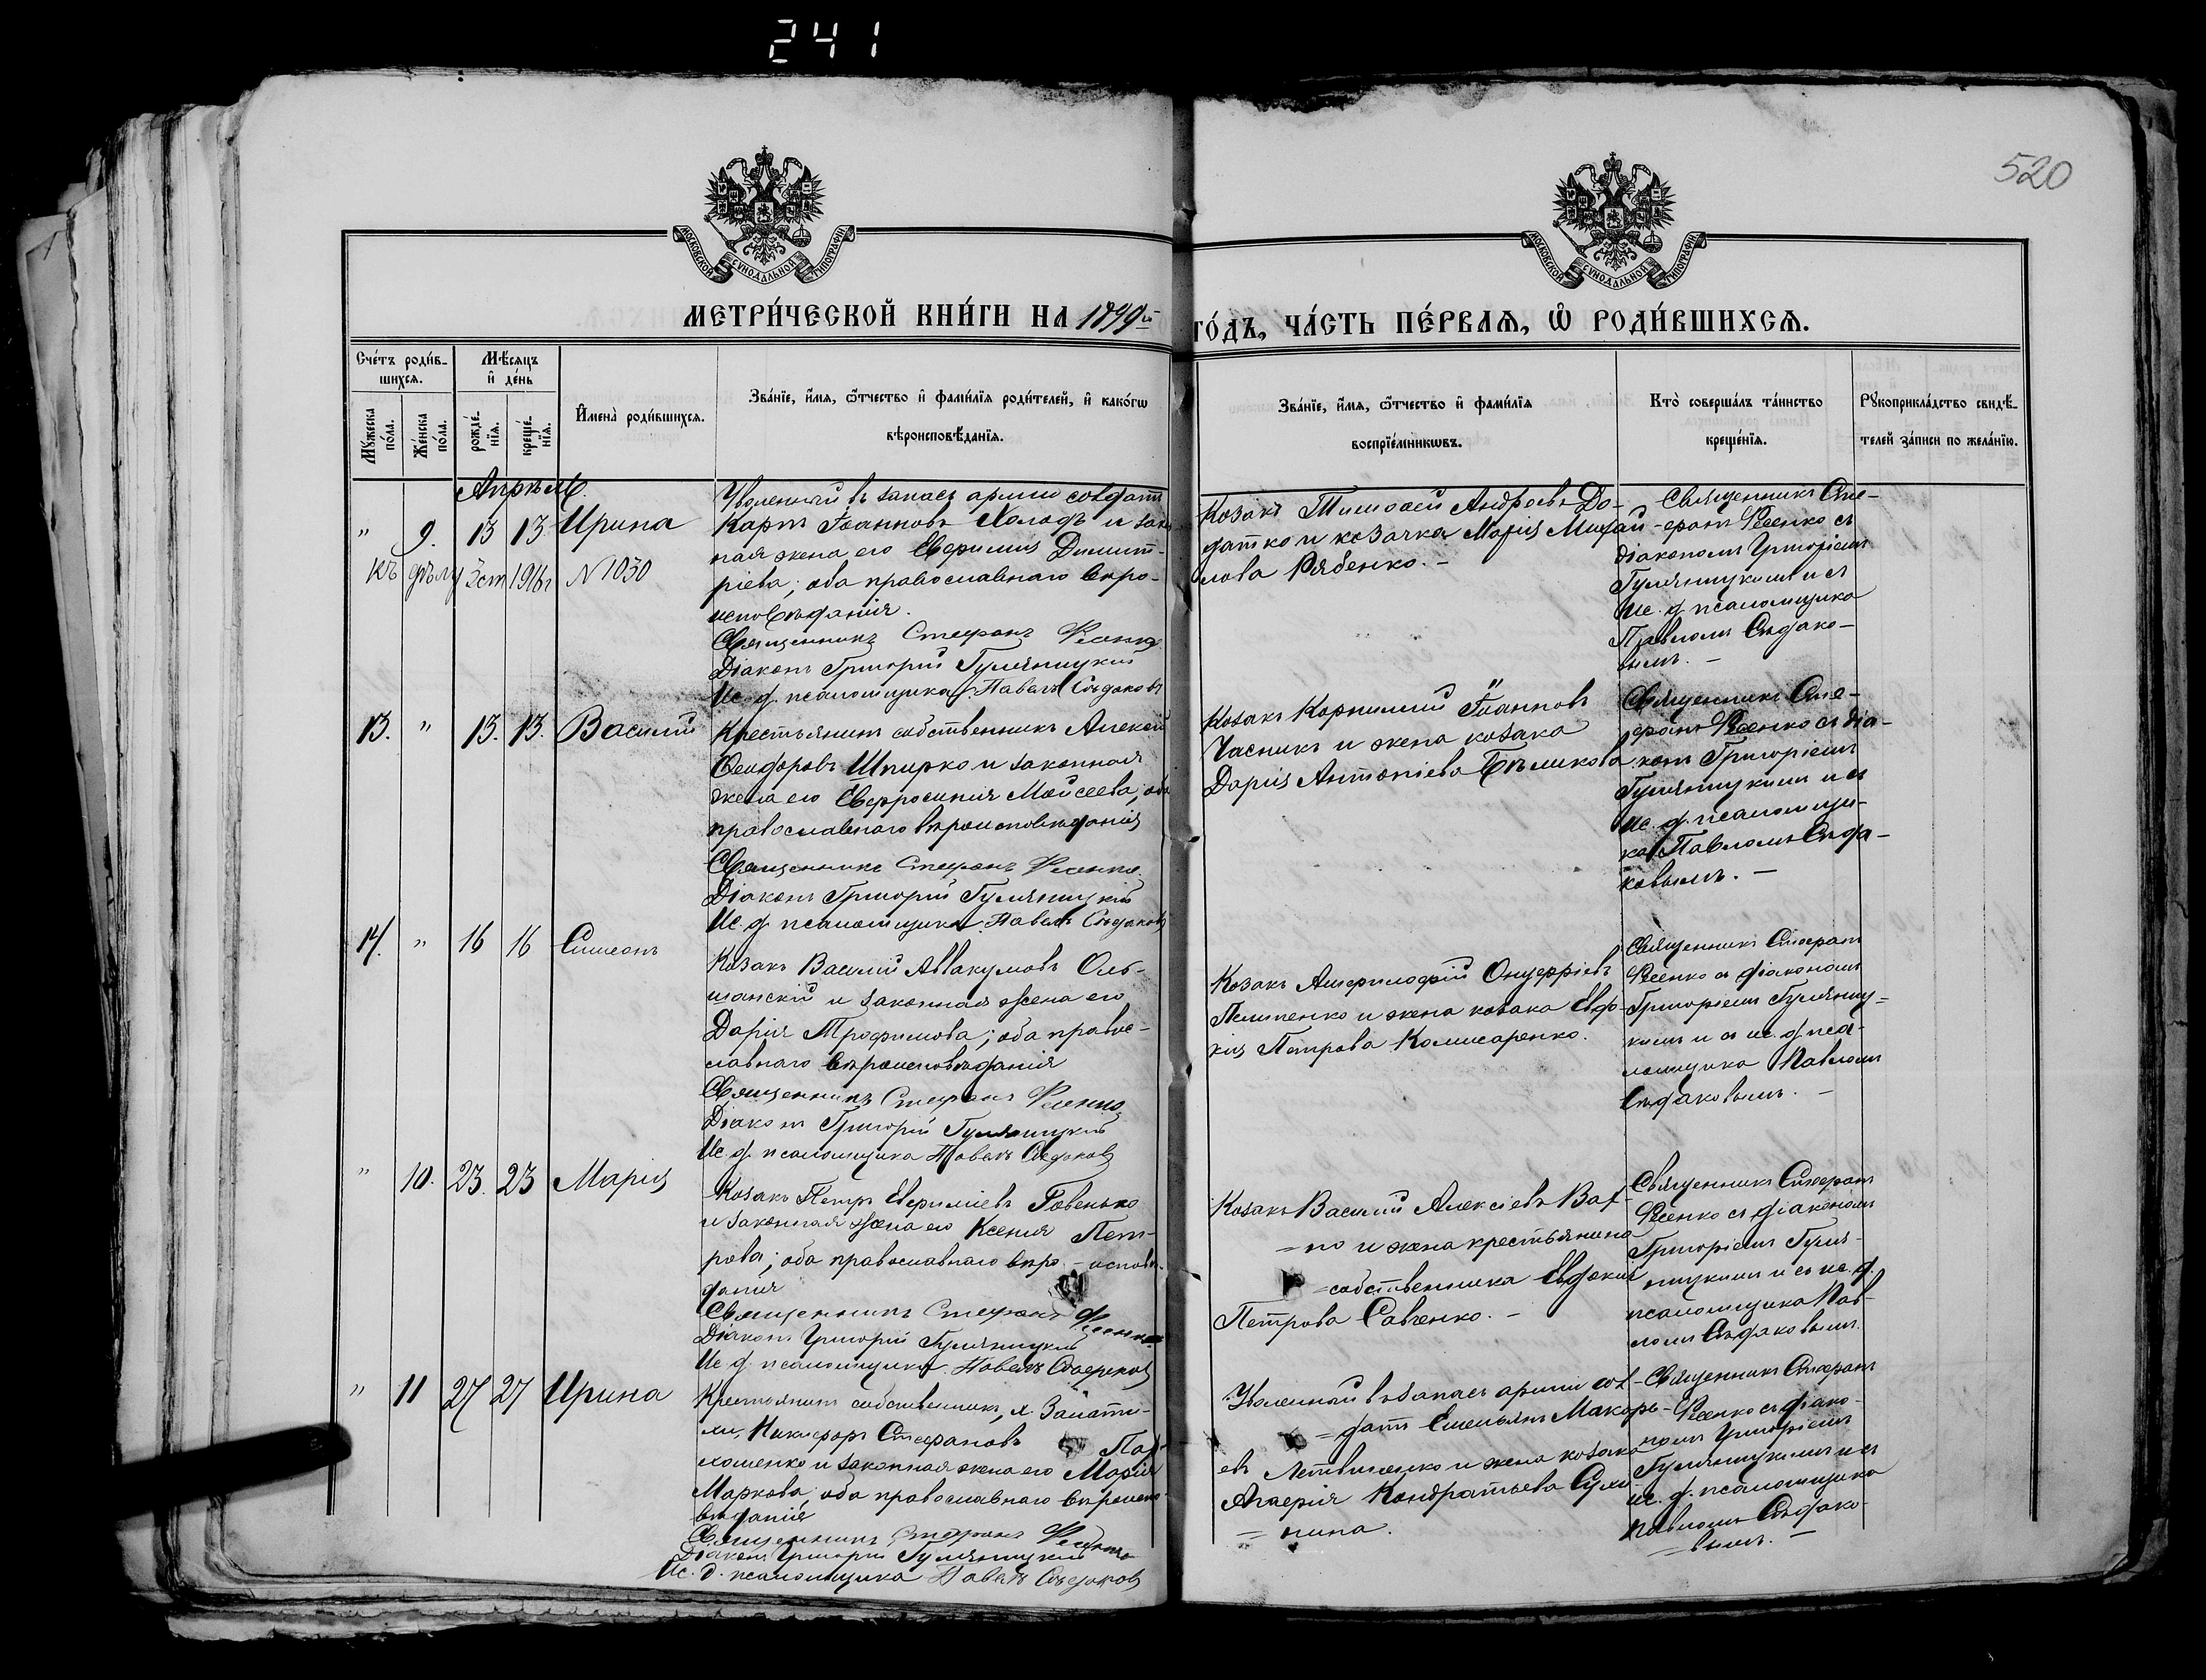 241
520
МОСКОВСКОЙ СУНОДАЛЬНОЙ ТИПОГРАФІИ
МОСКОВСКОЙ СУНОДАЛЬНОЙ ТИПОГРАФІИ
МЕТРИ́ЧЕСКОЙ КНИ́ГИ НА 1899й
ГО́ДЪ, ЧА́СТЬ ПЕ́РВАѦ, Ѡ҆ РОДИ́ВШИХСѦ.
Сче́тъ роди́в-
шихсѧ.
Мꙋ́жеска по́ла.
Же́нска по́ла.
Мѣ́сѧцъ и҆ де́нь
рожде́-
нїѧ.
креще́-
нїѧ.
И҆мена̀ роди́вшихсѧ.
Зва́нїе, и҆́мѧ, ѻ҆́тчество и҆ фами́лїѧ роди́телей, и҆ како́гѡ
вѣроисповѣ́данїѧ.
Зва́нїе, и҆́мѧ, ѻ҆́тчество и҆ фами́лїѧ
воспрїе́мникѡвъ.
Кто̀ соверша́лъ та́инство
креще́нїѧ.
Рꙋкоприкла́дство свидѣ́-
телей за́писи по жела́нїю.
Апрѣль.
" 9. 13 13 Ирина
Къ дѣлу 3 ст 1916 г N 1030
Уволенный въ запасъ арміи солдатъ
Карпъ Іоанновъ Холодъ и закон
ная жена его Евфимія Димит-
ріева; оба православнаго вѣро-
исповѣданія.
Священникъ Стефанъ Фесенко
Діаконъ Григорій Гуляницкій
Ис. д. псаломщика Павелъ Съедаковъ
Козакъ Тимоѳей Андреевъ До-
датко и козачка Марія Михай-
лова Рябенко. –
Священникъ Сте-
фанъ Фесенко съ
діакономъ Григоріемъ
Гуляницкимъ и съ
ис. д. псаломщика
Павломъ Съедако-
вымъ. –
13. " 13. 13. Василій
Крестьянинъ собственникъ Алексей
Ѳеодоровъ Шпирко и законная
жена его Евфросинія Моисеева; оба
православнаго вѣроисповѣданія
Священникъ Стефанъ Фесенко
Діаконъ Григорій Гуляницкій
Ис. д. псаломщика Павелъ Съедаковъ
Козакъ Корнилий Іоанновъ
Часникъ и жена козака
Дарія Антоніева Бѣликова
Священникъ Сте-
фанъ Фесенко съ діа-
кономъ Григоріемъ
Гуляницкимъ и съ
ис. д. псаломщи-
ка Павломъ Съеда-
ковымъ. –
14. " 16 16 Симеонъ
Козакъ Василій Аввакумовъ Оль-
шанскій и законная жена его
Дарія Трофимова; оба правос-
лавнаго вѣроисповѣданія
Священникъ Стефанъ Фесенко
Діаконъ Григорій Гуляницкій
Ис. д. псаломщика Павелъ Съедаковъ
Козакъ Амфилофій Онуфріевъ
Пилипенко и жена козака Евдо-
кія Петрова Комисаренко.
Священникъ Стефанъ
Фесенко съ діакономъ
Григоріемъ Гуляниц=
кимъ и съ ис. д. пса-
ломщика Павломъ
Съедаковымъ. –
" 10. 23. 23 Марія
Козакъ Петръ Евфиміевъ Говенько
и законная жена его Ксенія Пет-
рова; оба православнаго вѣро – исповѣ-
данія
Священникъ Стефанъ Фесенко
Діаконъ Григорій Гуляницкій
Ис. д. псаломщика Павелъ Съедаковъ
Козакъ Василій Алексіевъ
=но и жена крестьянина
=собственника Евдокія
Петрова Савченко. –
Священникъ Стефанъ
Фесенко съ діакономъ
Григоріемъ Гуля-
ницкимъ и съ ис. д.
псаломщика Пав-
ломъ Съедаковымъ.
" 11 27 27 Ирина
Крестьянинъ собственникъ, х.
Никифоръ Стефановъ Пар-
хоменко и законная жена его Марія
Маркова, оба православнаго вѣроиспо-
вѣданія
Священникъ Стефанъ Фесенко
Діаконъ Григорій Гуляницкій
Ис. д. псаломщика Павелъ Съедаковъ
Уволенный въ запасъ арміи сол-
=датъ Емельянъ Макарь-
евъ Литвиненко и жена козака
Агафія Кондратьева Сухо-
=нина.
Священникъ Стефанъ
Фесенко съ діако-
номъ Григоріемъ
Гуляницкимъ и съ
ис. д. псаломщика
Павломъ Съедако-
=вымъ. –